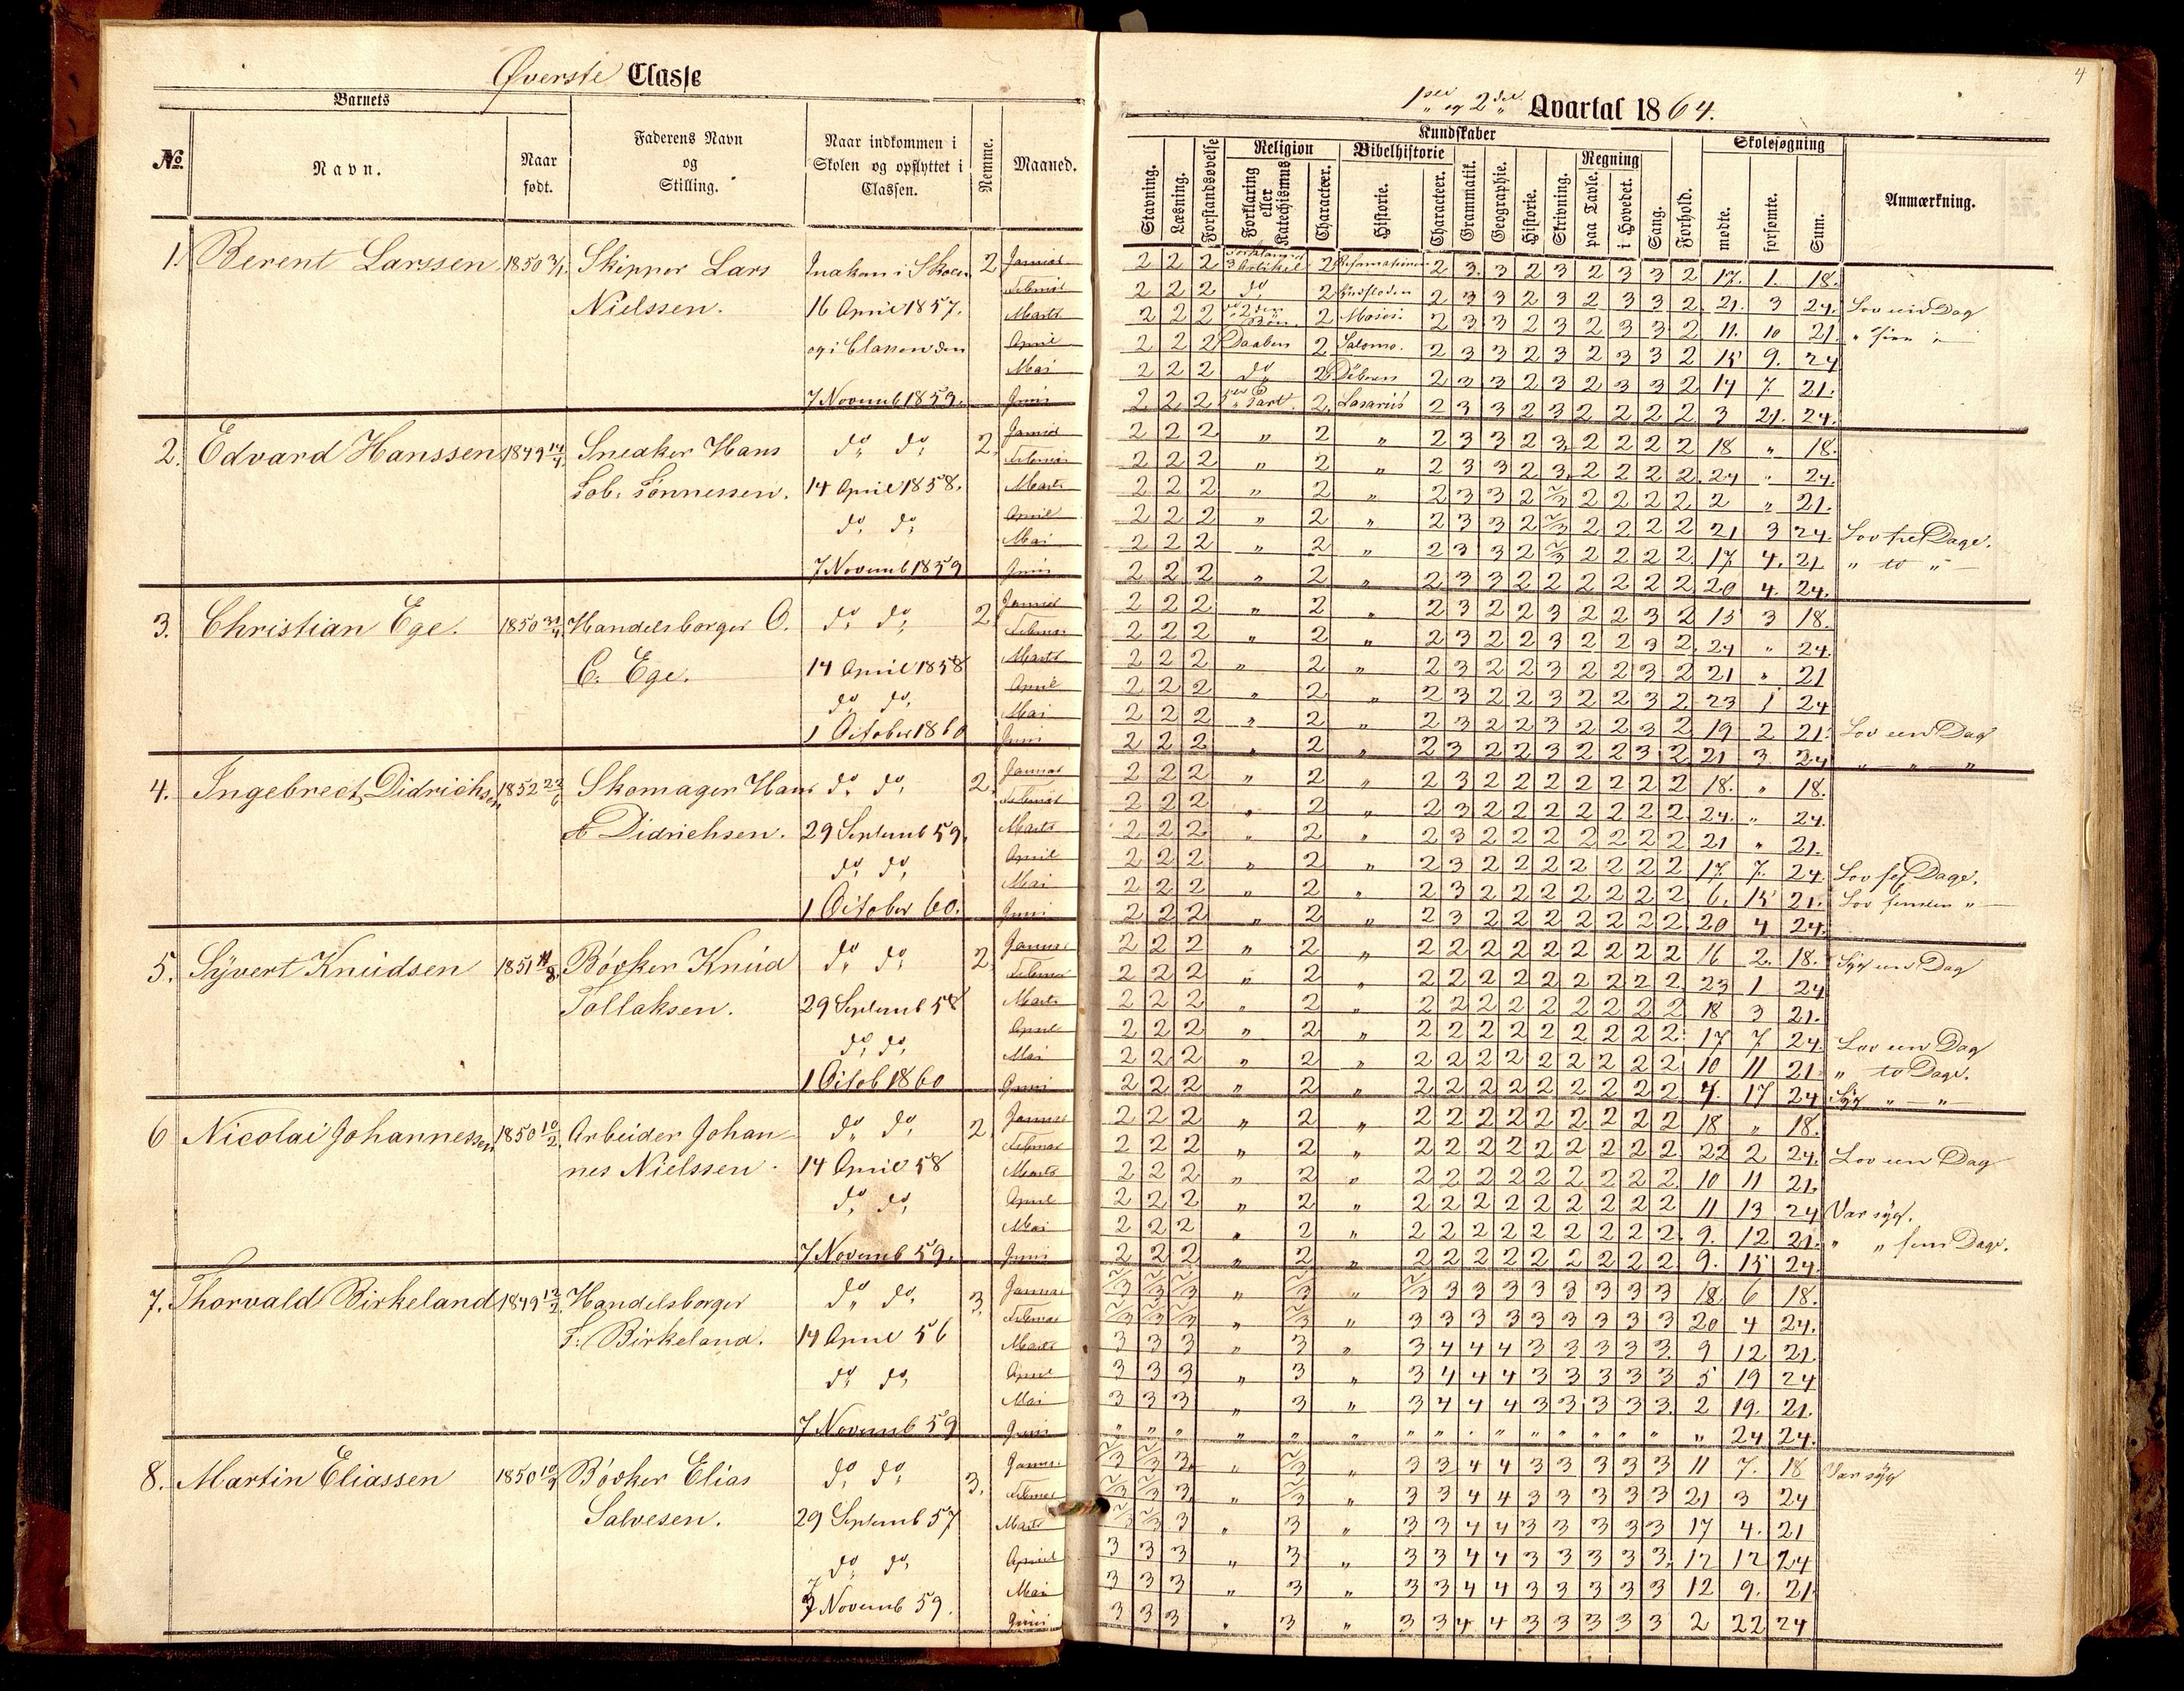 Øverste Classe
Barnets
No. Navn. Naar født. Faderens Navn og Stilling. Naar indkommen i Skolen og opflyttet i Classen. Nemme. Maaned.
1. Berent Larssen 1850 3/1. Skipper Lars Indkom i Skolen 2 Januar
Februar
Nielssen. 16 April 1857. Marts
og i Classen den April
Mai
7 Novemb 1859. Juni
2. Edvard Hanssen 1849 14/4. Snedker Hans do do 2. Januar
Februar
Tob. Tønnessen. 14 April 1858. Marts
do do April
Mai
7 Novemb 1859 Juni
3. Christian Ege. 1850 Handelsborger O. do do 2 Januar
Februar
C. Ege. 14 April 1858 Marts
do do April
Mai
1 October 1860 Juni
4. Ingebrect Didrichsen 1852 22/6 Skomager Hans do do 2. Januar
Februar
Didrichsen. 29 Septemb 59. Marts
do do April
Mai
1 October 60. Juni
5. Syvert Knudsen 1851 11/8. Bøcker Knud do do 2. Januar
Februar
Tollaksen. 29 Septemb 58 Marts
do do April
Mai
1 Octob 1860 Juni
6 Nicolai Johannessen 1850 10/2 Arbeider Johan do do 2. Januar
Februar
nes Nielssen. 14 April 58 Marts
do do April
Mai
7 Novemb 59. Juni
7. Thorvald Birkeland 1849 12/2. Handelsborger do do 3. Januar
Februar
T. Birkeland. 14 April 56 Marts
do do April
Mai
7 Novemb 59 Juni
8. Martin Eliassen 1850 Bøcker Elias do do 3. Januar
Februar
Salvesen. 29 Septemb 57 Marts
do do April
7 Novemb 59. Mai
Juni
4
1ste og 2det Qvartal 1864.
Kundskaber Skolesøgning
Stavning. Læsning. Forstandsøvelse Religion Forklaring eller Katechismus Characteer. Bibelhistorie Historie. Characteer. Grammatik. Geographie. Historie. Skrivning. Regning paa Tavle. i Hovedet. Sang. Forhold. mødte. forsømte. Sum. Anmærkning.
2 2 2 3 Artikel 2 Reformationen 2 3 3 2 3 2 3 3 2 17. 1. 18.
2 2 2 do 2 Syndfloden 2 3 3 2 3 2 3 3 2 21. 3 24. Lov een Dag
2 2 2 2den Bøn. 2 Moses. 2 3 3 2 3 2 3 3 2 11. 10 21.
2 2 2 Daaben 2 Salomo. 2 3 3 2 3 2 3 3 2 15 9. 24
2 2 2 do 2 2 3 3 2 3 2 3 3 2 14 7 21.
2 2 2 Part. 2. Lasarus 2 3 3 2 3 2 2 2 2 3 21. 24.
2 2 2 " 2 " 2 3 3 2 3 2 2 2 2 18 " 18.
2 2 2 " 2 " 2 3 3 2 3 2 2 2 2 24 " 24.
2 2 2 " 2 " 2 3 3 2 2/3 2 2 2 2 2 " 21.
2 2 2 " 2 " 2 3 3 2 2/3 2 2 2 2 21 3 24. Lov tre Dage.
2 2 2 " 2 " 2 3 3 2 2/3 2 2 2 2 17 4. 21 " to "
2 2 2 " 2 " 2 3 3 2 2 2 2 2 2 20 4. 24.
2 2 2 " 2 " 2 3 2 2 3 2 2 3 2 15 3 18.
2 2 2 " 2 " 2 3 2 2 3 2 2 3 2 24 " 24.
2 2 2 " 2 " 2 3 2 2 3 2 2 3 2 21 " 21
2 2 2 " 2 " 2 3 2 2 3 2 2 3 2 23 1 24
2 2 2 " 2 " 2 3 2 2 3 2 2 3 2 19 2 21. Lov een Dag
2 2 2 " 2 " 2 3 2 2 3 2 2 3 2 21 3 24 " " "
2 2 2 " 2 " 2 3 2 2 2 2 2 2 2 18. " 18.
2 2 2 " 2 " 2 3 2 2 2 2 2 2 2 24. " 24.
2 2 2 " 2 " 2 3 2 2 2 2 2 2 2 21 " 21.
2 2 2 " 2 " 2 3 2 2 2 2 2 2 2 17 7. 24. Lov sex Dage.
2 2 2 " 2 " 2 3 2 2 2 2 2 2 2 6. 15 21. Lov femten "
2 2 2 " 2 " 2 3 2 2 2 2 2 2 2 20 4 24.
2 2 2 " 2 " 2 2 2 2 2 2 2 2 2 16 2. 18. Syg een Dag
2 2 2 " 2 " 2 2 2 2 2 2 2 2 2 23 1 24
2 2 2 " 2 " 2 2 2 2 2 2 2 2 2 18 3 21.
2 2 2 " 2 " 2 2 2 2 2 2 2 2 2 17 7 24. Lov een Dag
2 2 2 " 2 " 2 2 2 2 2 2 2 2 2 10 11 21 " to Dage.
2 2 2 " 2 " 2 2 2 2 2 2 2 2 2 7. 17 24 Syg " "
2 2 2 " 2 " 2 2 2 2 2 2 2 2 2 18 " 18.
2 2 2 " 2 " 2 2 2 2 2 2 2 2 2 22 2 24. Lov een Dag
2 2 2 " 2 " 2 2 2 2 2 2 2 2 2 10 11 21.
2 2 2 " 2 " 2 2 2 2 2 2 2 2 2 11 13 24 Var syg.
2 2 2 " 2 " 2 2 2 2 2 2 2 2 2 9. 12 21. " " fem Dage.
2 2 2 " 2 " 2 2 2 2 2 2 2 2 2 9. 15 24.
2/3 2/3 2/3 " 2/3 " 2/3 3 3 3 3 3 3 3 3 18 6 18.
2/3 2/3 2/3 " 2/3 " 3 3 3 3 3 3 3 3 3 20 4 24.
3 3 3 " 3 " 3 4 4 4 3 3 3 3 3 9 12 21.
3 3 3 " 3 " 3 4 4 4 3 3 3 3 3 5 19 24
3 3 3 " 3 " 3 4 4 4 3 3 3 3 3 2 19. 21.
" " " " " " " " " " " " " " " " 24 24.
2/3 2/3 3 " 2/3 " 3 3 4 4 3 3 3 3 3 11 7. 18 Var syg
2/3 2/3 3 " 2/3 " 3 3 4 4 3 3 3 3 3 21 3 24
2/3 2/3 3 " 3 " 3 3 4 4 3 3 3 3 3 17 4. 21
3 3 3 " 3 " 3 3 4 4 3 3 3 3 3 12 12 24
3 3 3 " 3 " 3 3 4 4 3 3 3 3 3 12 9. 21
3 3 3 " 3 " 3 3 4 4 3 3 3 3 3 2 22 24